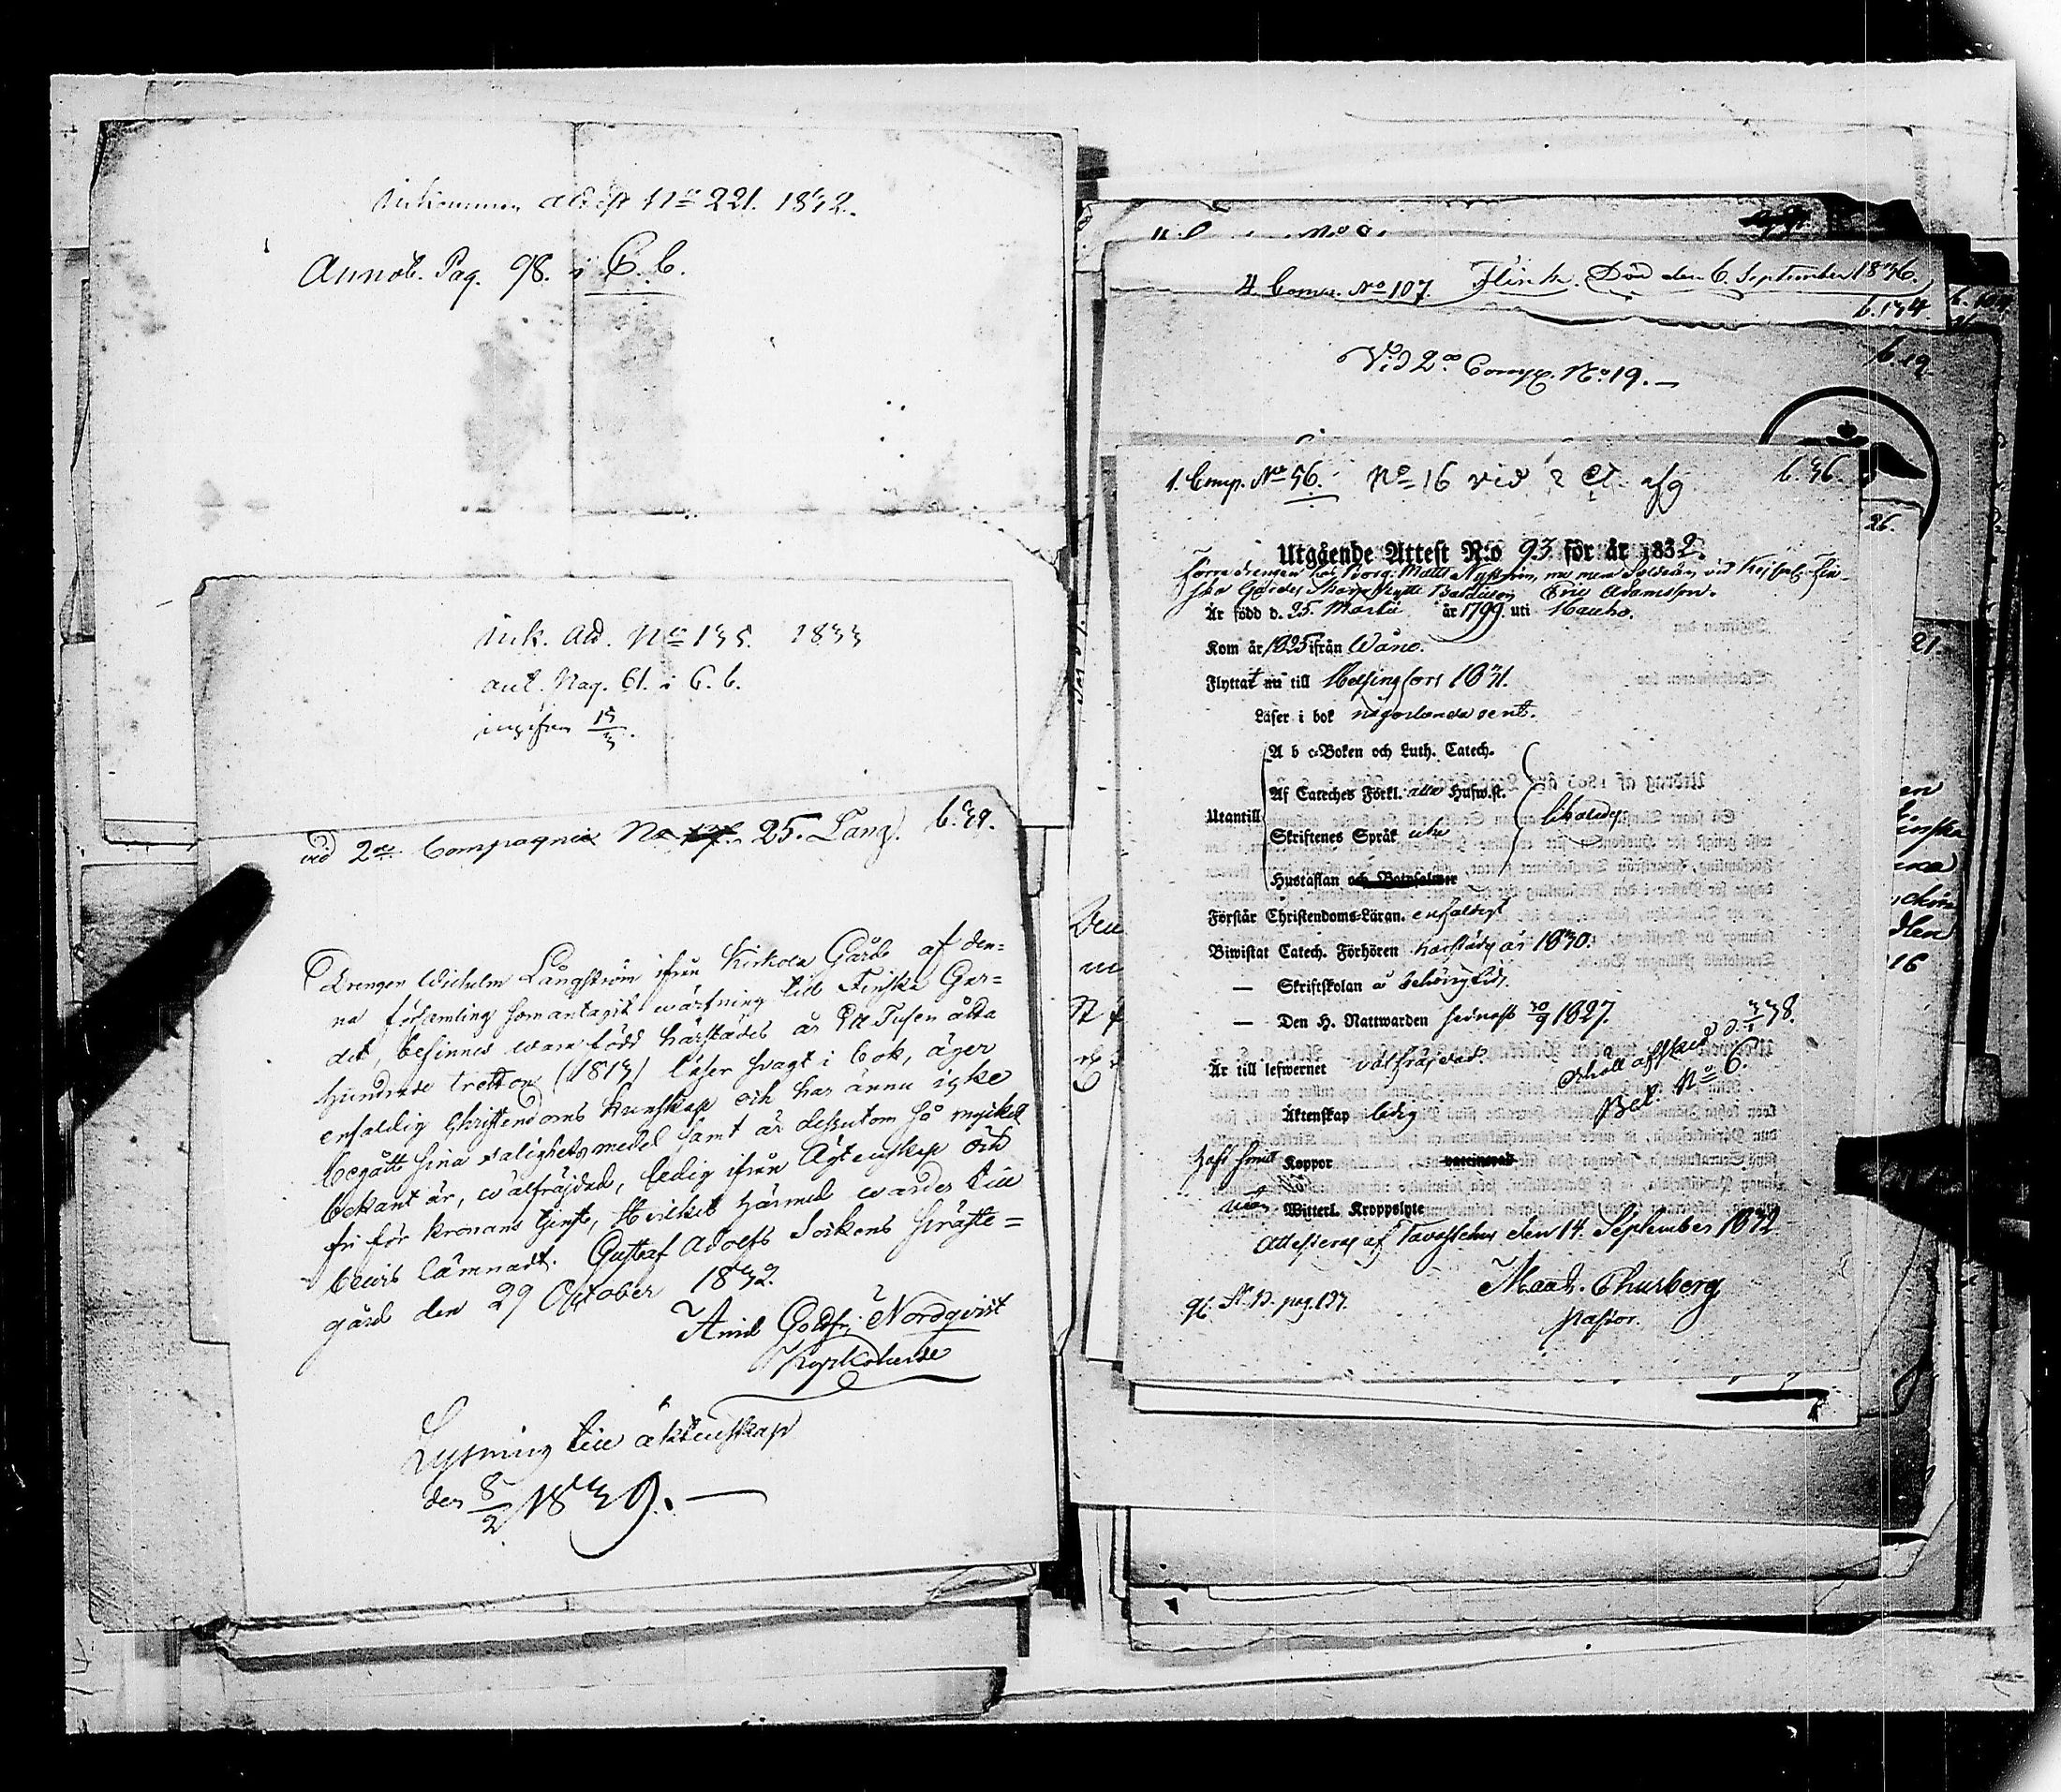 Inkommen att. N:o 221. 1832.
Annot. Pag. 98. i C. b.
Ink. Att. N:o 135. 1833
ant. Pag. 61. i C. b.
15/3.
vid 2:a Compagnie No 25. Lång. b. 39.
Drengen Wilhelm Långström ifrån Kirkola Gård af den-
na församling som antagit värfning till Finska Gar-
det, befinnes vara född härstädes år Ett Tusen åtta
hundrade tretton (1813) läser svagt i bok, äger
enfaldig Christendoms kunskap och har ännu icke
begått sina salighetsmedel samt är dessutom så mycket
bekant är, välfräjdad, ledig ifrån Ägtenskap och
fri för kronans tjenst, Hvilket härmed warder till
bewis lämnadt. Gustaf Adolfs Sockens Präste-
gård den 29 October 1832.
Arvid Gottfr: Nordqvist
Kyrkoherde
Lysning till äktenskap
den 8/2 1839. —
4 Comp. No 107. Flink. Död den 6. September 1836.
b. 134
Vid 2:a Comp. No 19. —
b. 19
1. Comp. No 56. No 16 vid 2 b. 36.
26.
Utgående Attest N:o 93 för år 1832.
Förre drengen hos Borg: Matts Nyström, nu mera Soldaten vid Kejserl. Fin-
ska Gardes Skarpskytte Bataillon Eric Adamsson.
Är född d. 25. Martii år 1799. uti Hauho.
Kom år 1825 ifrån Wånå.
Flyttat nu till Helsingfors 1831.
Läser i bok någorlunda rent.
A b c-Boken och Luth. Catech.
Af Cateches Förkl. alla Hufw.st.
Utantill
Skriftenes Språk
Hustaflan och Botpsalmer
Förstår Christendoms-Läran. enfaldigt
Biwistat Catech. Förhören härstädes år 1830.
— Skriftskolan å behörig tid.
— Den H. Nattwarden senast 30/9 1827.
Är till lefwernet välfräjdad.
Erhöll afsked d. 3/1 38.
Bet. No 6.
Äktenskap ledig
Haft Koppor vaccinerad
Witterl. Kroppslyte
Attesteras af Tavastehus den 14. September 1832
Maat. Thurberg
Pastor.
pag. 137.